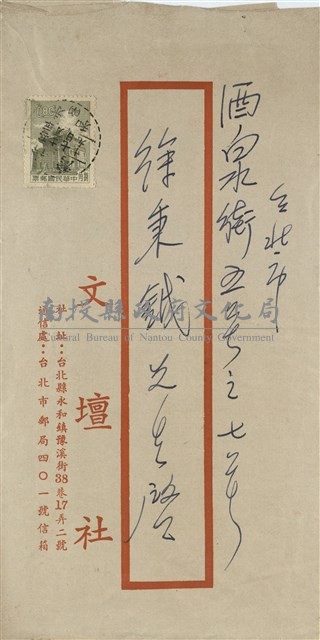 台北市
酒泉街五五号之七号
徐秉鉞先生啓
文壇社
社址：台北縣永和鎮豫溪街38巷17弄二號
通信處：台北市郵局四〇一號信箱
南投縣政府文化局
Cultural Bureau of Nantou County Government
中華民國郵票